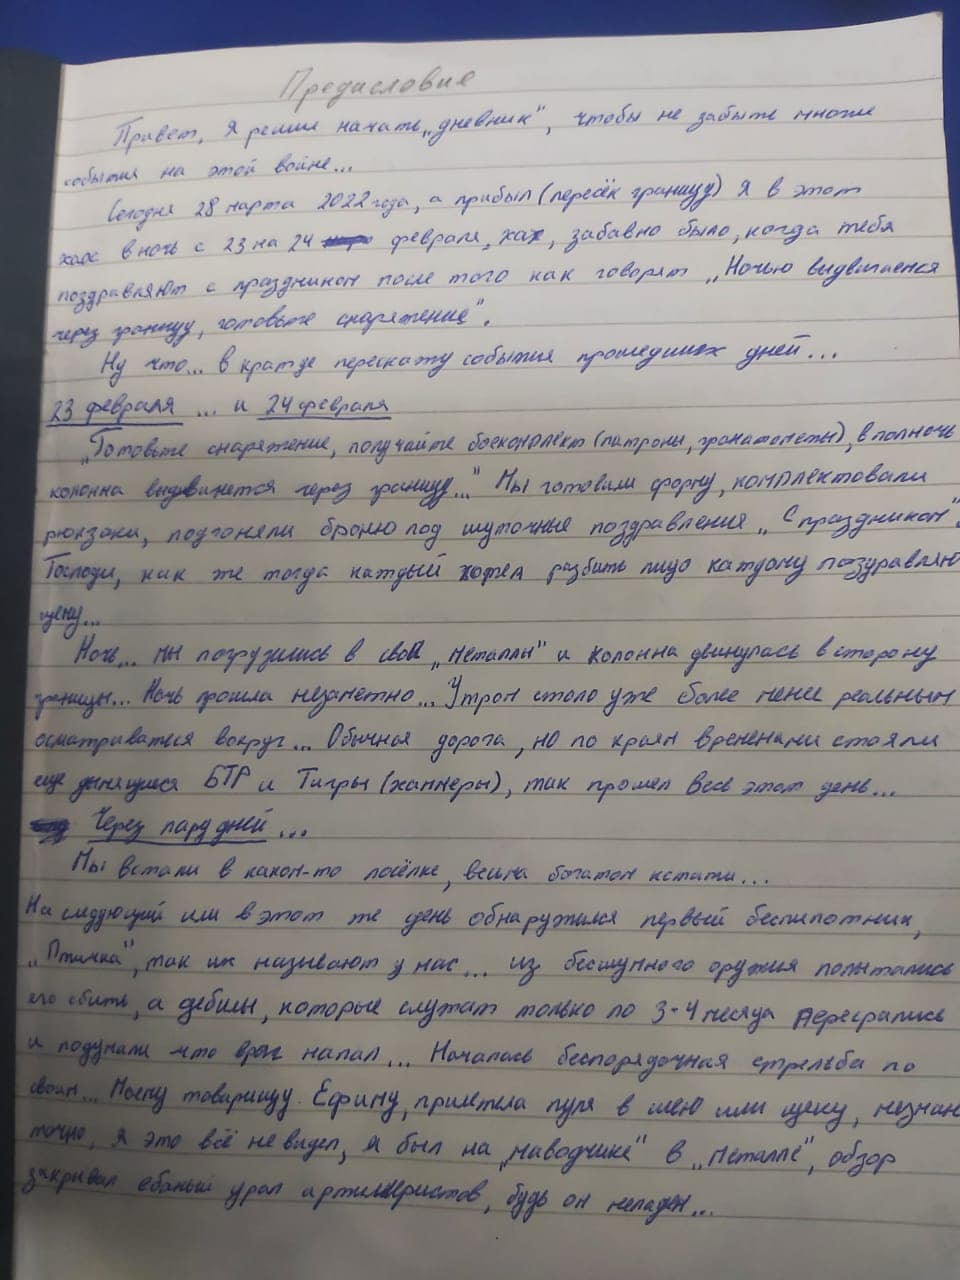 Предисловие
Привет, я решил начать „дневник", чтобы не забыть многие
события на этой войне...
Сегодня 28 марта 2022 года, а прибыл (пересёк границу) я в этот
хаос в ночь с 23 на 24 февраля, хах, забавно было, когда тебя
поздравляют с праздником после того как говорят „Ночью выдвигаемся
через границу, готовьте снаряжение".
Ну что... в кратце перескажу события прошедших дней...
23 февраля ... и 24 февраля
„Готовьте снаряжение, получайте боекомплект (патроны, гранатометы), в полночь
колонна выдвинется через границу..." Мы готовили форму, комплектовали
рюкзаки, подгоняли броню под шуточные поздравления „С праздником".
Господи, как же тогда каждый хотел разбить лицо каждому поздравляю
щему...
Ночь... мы погрузились в свой „металлы" и колонна двинулась в сторону
границы... Ночь прошла незаметно... Утром стало уже более менее реальным
осматриваться вокруг... Обычная дорога, но по краям временами стояли
еще дымящиеся БТР и Тигры (хаммеры), так прошел весь этот день...
Через пару дней...
Мы встали в каком-то посёлке, весьма богатом кстати...
На следующий или в этот же день обнаружился первый беспилотник,
„Птичка", так их называют у нас... из бесшумного оружия попытались
его сбить, а дебилы, которые служат только по 3-4 месяца пересрались
и подумали что враг напал... Началась беспорядочная стрельба по
своим... Моему товарищу Ефиму, прилетела пуля в шею или щеку, незнаю
точно, я это всё не видел, я был на „наводчике" в „металле", обзор
закрывал ебаный урал артиллеристов, будь он неладен...